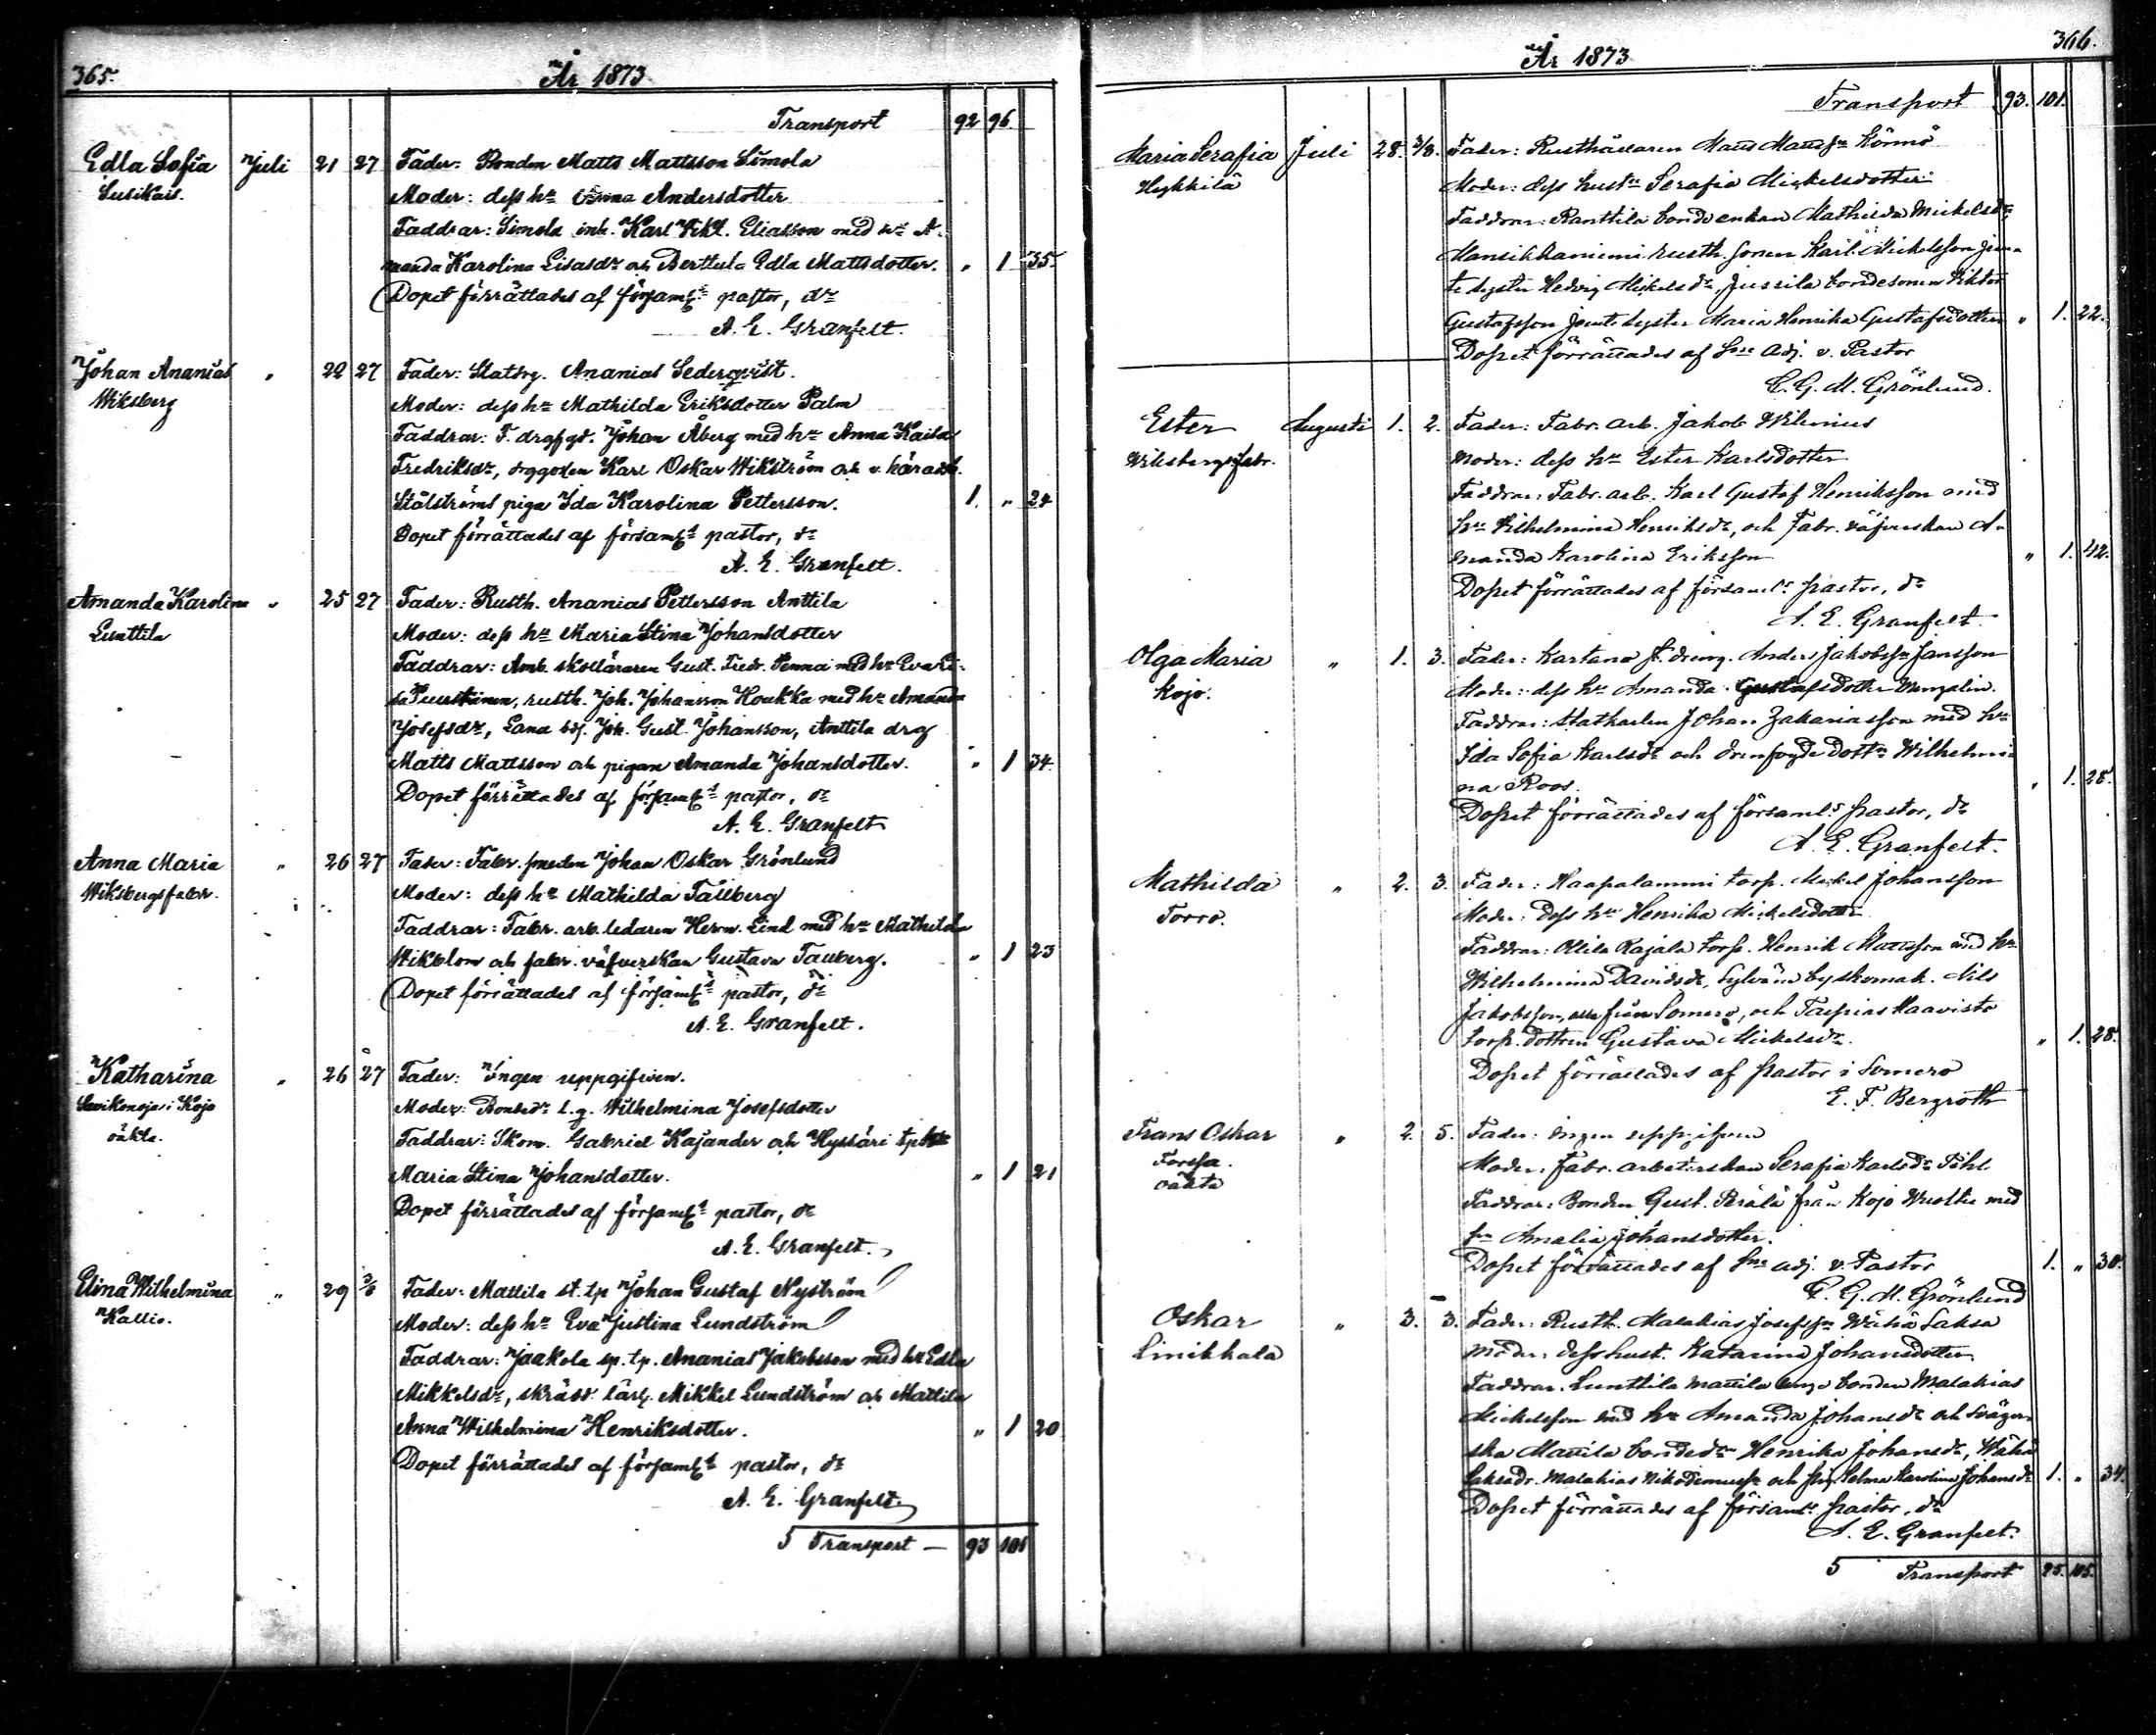 365.
År 1873
Transport 92 96
Edla Sofia Juli 21 27 Fader: Bonden Matts Mattsson Simola
Susikais. Moder: dess hu Anna Andersdotter
Faddrar: Simola inh. Karl Vikt. Eliasson med hu A-
manda Karolina Eliasdr och Berttula Edla Mattsdotter. " 1 35.
Dopet förrättades af församls pastor, dr
A. E. Granfelt.
Johan Ananias " 22 27 Fader: Statdrg. Ananias Sederqvist.
Wiksberg Moder: dess hu Mathilda Eriksdotter Palm
Faddrar: F. drgfgd. Johan Åberg med hu Anna Kaisa
Fredriksdr, drggossen Karl Oskar Wikström och v. häradsh.
Stålströms piga Ida Karolina Pettersson. 1. " 24
Dopet förrättades af församls pastor, dr
A. E. Granfelt.
Amanda Karolina " 25 27 Fader: Rusth. Ananias Pettersson Anttila
Lunttila Moder: dess hu Maria Stina Johansdotter
Faddrar: Amb. skolläraren Gust. Fredr. Penna med hu Eva
rusth. Joh. Johansson Houkka med hu Amanda
Josefsdr, Lana Joh. Gust. Johansson, Anttila drg
Matts Mattsson och pigan Amanda Johansdotter. " 1 34.
Dopet förrättades af församls pastor, dr
A. E. Granfelt
Anna Maria " 26 27 Fader: Fabr. smeden Johan Oskar Grönlund
Wiksbergs fabr. Moder: dess hu Mathilda Tallberg
Faddrar: Fabr. arb. ledaren Herm. Lind med hu Mathilda
Wikblom och fabr. väfverskan Gustava Tauberg. " 1 23
Dopet förrättades af församls pastor, dr
A. E. Granfelt.
Katharina " 26 27 Fader: Ingen uppgifven.
Savikonoja i Kojo Moder: Bondedr l.q. Wilhelmina Josefsdotter
oäkta. Faddrar: Skom. Gabriel Kajander och Hyssäri
Maria Stina Johansdotter. " 1 21
Dopet förrättades af församls pastor, dr
A. E. Granfelt.
Elina Wilhelmina " 29 3/8 Fader: Mattila st. tp Johan Gustaf Nyström
Kallio. Moder: dess hu Eva Justina Lundström
Faddrar: Jaakola sp. tp. Ananias Jakobsson med hu Edla
Mikkelsdr, skrädd. lärl. Mikkel Lundström och Mattila
Anna Wilhelmina Henriksdotter. " 1 20
Dopet förrättades af församls pastor, dr
A. E. Granfelt
5 Transport — 93 101
366.
År 1873
Transport 93. 101.
Maria Serafia Juli 28. 3/8. Fader: Rusthållaren Matts Mattsson Könnö
Hykkilä Moder: dess hustru Serafia Mickelsdotter
Faddrar: Ranttila bonde enkan Mathilda Mickelsdr,
Mansikkaniemi rusth. sonen Karl Mickelsson jem-
te syster Hedvig Mickelsdr, Jussila bondesonen Viktor
Gustafsson jemte syster Maria Henrika Gustafsdotter " 1. 22.
Dopet förrättades af sue adj. v. Pastor
C. G. M. Grönlund.
Ester Augusti 1. 2. Fader: Fabr. arb. Jakob Wilenius
Wiksbergs fabr. Moder: dess hu Ester Karlsdotter
Faddrar: Fabr. arb. Karl Gustaf Henriksson med
hu Wilhelmina Henriksdr, och Fabr. väfverskan A-
manda Karolina Eriksson " 1. 42.
Dopet förrättades af församls pastor, dr
A. E. Granfelt
Olga Maria " 1. 3. Fader: Kartano st. dreng. Anders Jakobsson Jansson
Kojo. Moder: dess hu Amanda Gustafsdotter Wengelin.
Faddrar: Statkarlen Johan Zakariasson med hu
Ida Sofia Karlsdr och drengfogde dottn Wilhelmi-
na Roos. " 1. 28.
Dopet förrättades af församls pastor, dr
A. E. Granfelt.
Mathilda " 2. 3. Fader: Haapalammi torp. Mickel Johansson
Torro. Moder: dess hu Henrika Mickelsdotter
Faddrar: Ollila Rajala torp. Henrik Mattsson med hu
Wilhelmina Davidsdr, Sylvänä byskomak. Nils
Jakobsson, alla från Somero, och Haavisto
torp. dottren Gustava Mickelsdr. " 1. 28.
Dopet förrättades af pastor i Somero
E. F. Bergroth
Frans Oskar " 2. 5. Fader: ingen uppgifven
Forssa. Moder: Fabr. arbeterskan Serafia Karlsdr Pihl
oäkta Faddrar: Bonden Gust. Perälä från Kojo med
hu Amalia Johansdotter.
Dopet förrättades af sue adj. v. Pastor 1. " 30.
C. G. M. Grönlund
Oskar " 3. 3. Fader: Rusth. Malakias Josefsson Wähä Saksa
Linikkala Moder: dess hust. Katarina Johansdotter
Faddrar: Lunttila Mattila unga bonden Malakias
Mickelsson med hu Amanda Johansdr och Sväger-
ska Mattila bondedn Henrika Johansdr, Wähä
Saksa dr. Malakias Nikodemusson och pig. Selma Karolina Johansdr 1. " 34.
Dopet förrättades af församls pastor, dr
A. E. Granfelt.
5 Transport 95. 105.